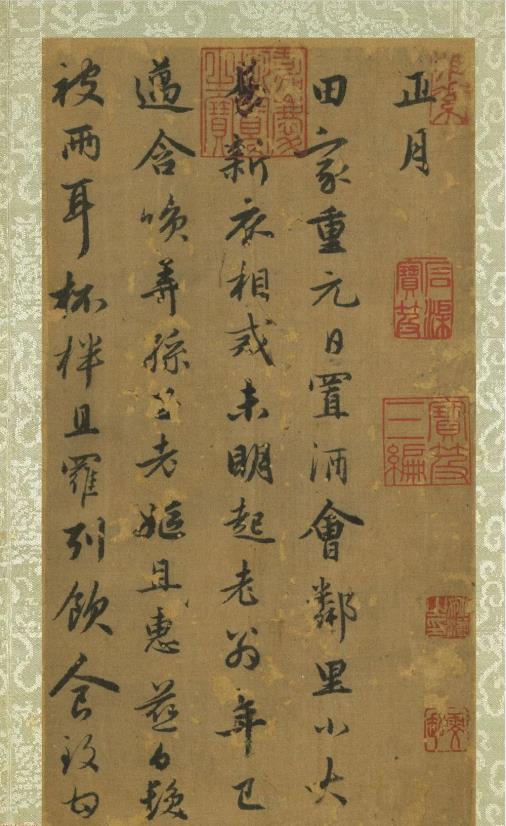 正月
田家重元日置酒會鄰里小大
新衣相戒未明起老翁年已
邁含咲弄孫子老嫗且惠慈白髮
被兩耳杯柈且羅列飲食致甘
石渠寶笈
寶笈三編